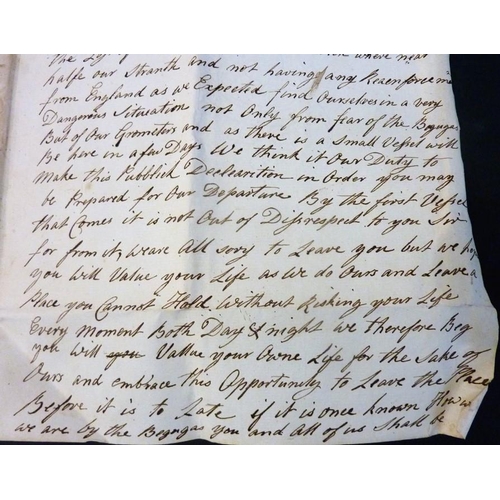 the
where near
halfe our Stranth and not having any Reaenforcem
from England as we Expected find Ourselves in a very
Dangerous Situation not Only from fear of the Bejugas
But of Our Gromettors and as there is a Small Vessel will
Be here in a few Days We think it Our Duty to
Make this Pubblick Declearation in Order you may
be Prepared for Our Departure By the first Vessel
that Comes it is not Out of Disrespect to you Sir
far from it, we are All sory to Leave you but we hop
you Will Value your Life as We do Ours and Leave a
Place you Cannot Hold Without Risking your Life
Every Moment Both Day & night we therefore Beg
you Will you Vallue your Owne Life for the Sake of
Ours and embrace this Opportunity to Leave the Place
Before it is to Late if it is once known How w
we are by the Bejugas you and All of us Shall be